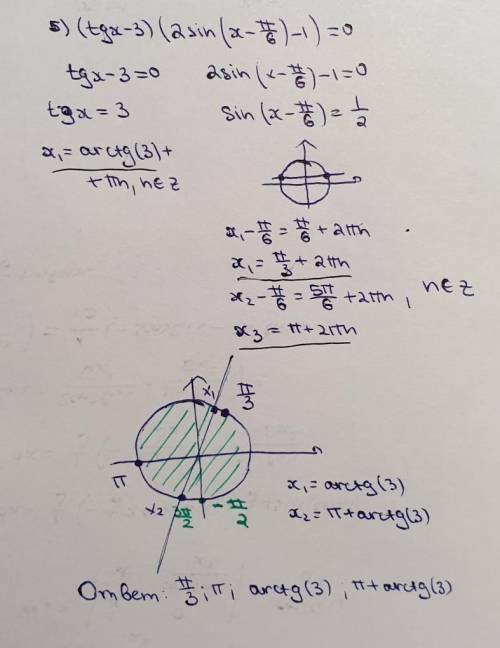 5) (tgx-3)(2sin(x-π/6)-1)=0
tgx-3=0 2sin(x-π/6)-1=0
tgx=3 sin(x-π/6)=1/2
x₁=arctg(3)+
+πn, n∈z
x₁-π/6=π/6+2πn
x₁=π/3+2πn
x₂-π/6=5π/6+2πn, n∈z
x₃=π+2πn
x₁ π/3
π
x₂ 3π/2 -π/2
x₁=arctg(3)
x₂=π+arctg(3)
Ответ: π/3; π; arctg(3); π+arctg(3)